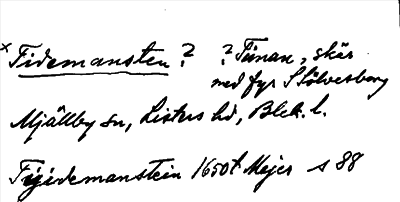 x Tidemansten? ? Timan, skär
med fyr S Sölvesborg
Mjällby sn, Listers hd, Blek. l.
Tijidemanstein 1650t Mejer s 88